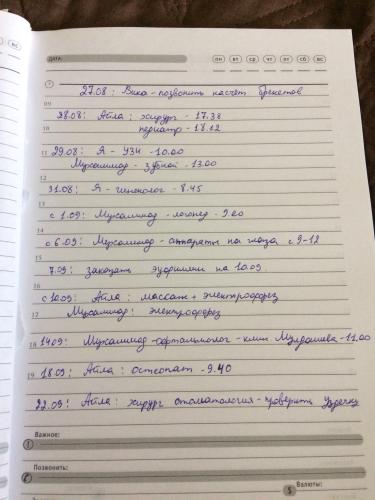 вс
ДАТА:
пн вт ср чт пт сб вс
27.08: Вика - позвонить насчёт брекетов
09
28.08: Айла: хирург - 17.38
10 педиатр - 18.12
11 29.08: Я - УЗИ - 10.00
Мухаммад - зубной - 13.00
12
31.08: Я - гинеколог - 8.45
13
с 1.09: Мухаммад - логопед - 9.00
14
с 6.09: Мухаммад - аппараты на глаза с 9-12
15
7.09: заказать эуфиллин на 10.09.
16
с 10.09: Айла: массаж + электрофорез
17 Мухаммад: электрофорез
18 14.09: Мухаммад - офтальмолог - клин Мулдашева - 11.00
19 18.09: Айла: остеопат - 9.40
22.09: Айла: хирург стоматология - проверить уздечку
Важное:
Позвонить:
Валюты:
$